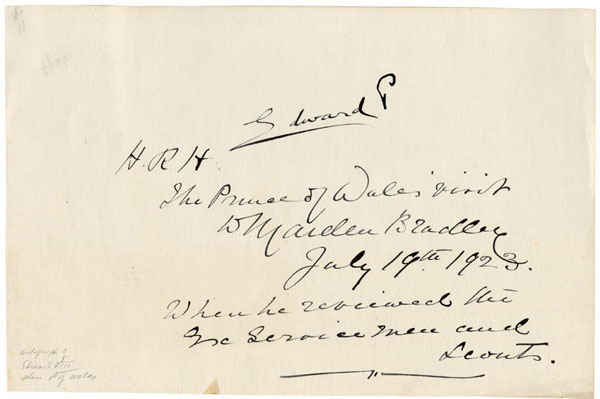 £
10
Edward P
H.R.H.
The Prince of Wales' visit
to Maiden Bradley
July 19th 1923.
When he reviewed the
Ex Service men and
Scouts.
autograph of
Edward VIII
when P of Wales